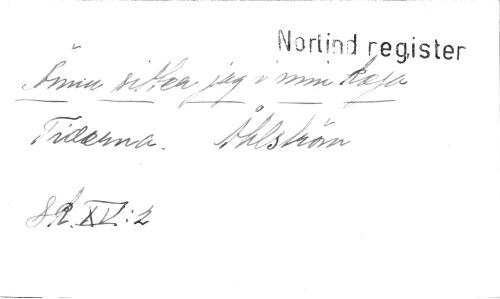 Norlind register
Ännu sitter jag i min koja
Tiderna. Åhlström
Sk. XV:2